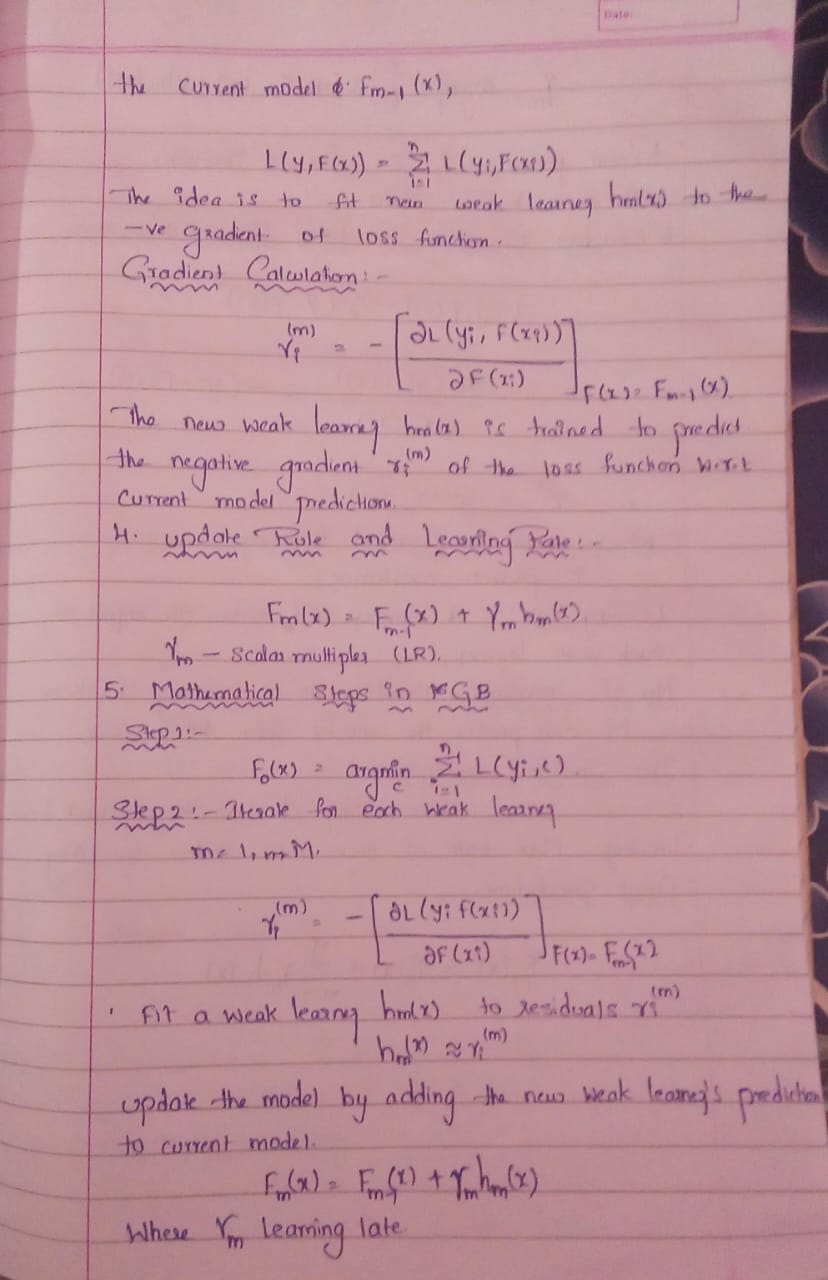 Date:
the current model & Fm-1 (x),
L(y, F(x)) = Σ i=1 n L(yi, F(xi))
The idea is to fit new weak learner hm(x) to the
-ve gradient of loss function.
Gradient Calculation:-
ri(m) = - [∂L(yi, F(xi)) / ∂F(xi)] F(x) = Fm-1(x)
The new weak learner hm(x) is trained to predict
the negative gradient ri(m) of the loss function w.r.t
current model predictions.
4. update Rule and Learning Rate:-
Fm(x) = Fm-1(x) + γm hm(x)
γm - Scalar multipler (LR).
5. Mathematical Steps in GB
Step 1:-
F0(x) = argmin c Σ i=1 n L(yi, c)
Step 2:- Iterate for each weak learner
m = 1, M.
ri(m) = - [∂L(yi f(xi)) / ∂F(xi)] F(x) = Fm-1(x)
. Fit a weak learner hm(x) to residuals ri(m)
hm(x) ≈ ri(m)
update the model by adding the new weak learner's prediction
to current model.
Fm(x) = Fm-1(x) + γm hm(x)
Where γm learning late